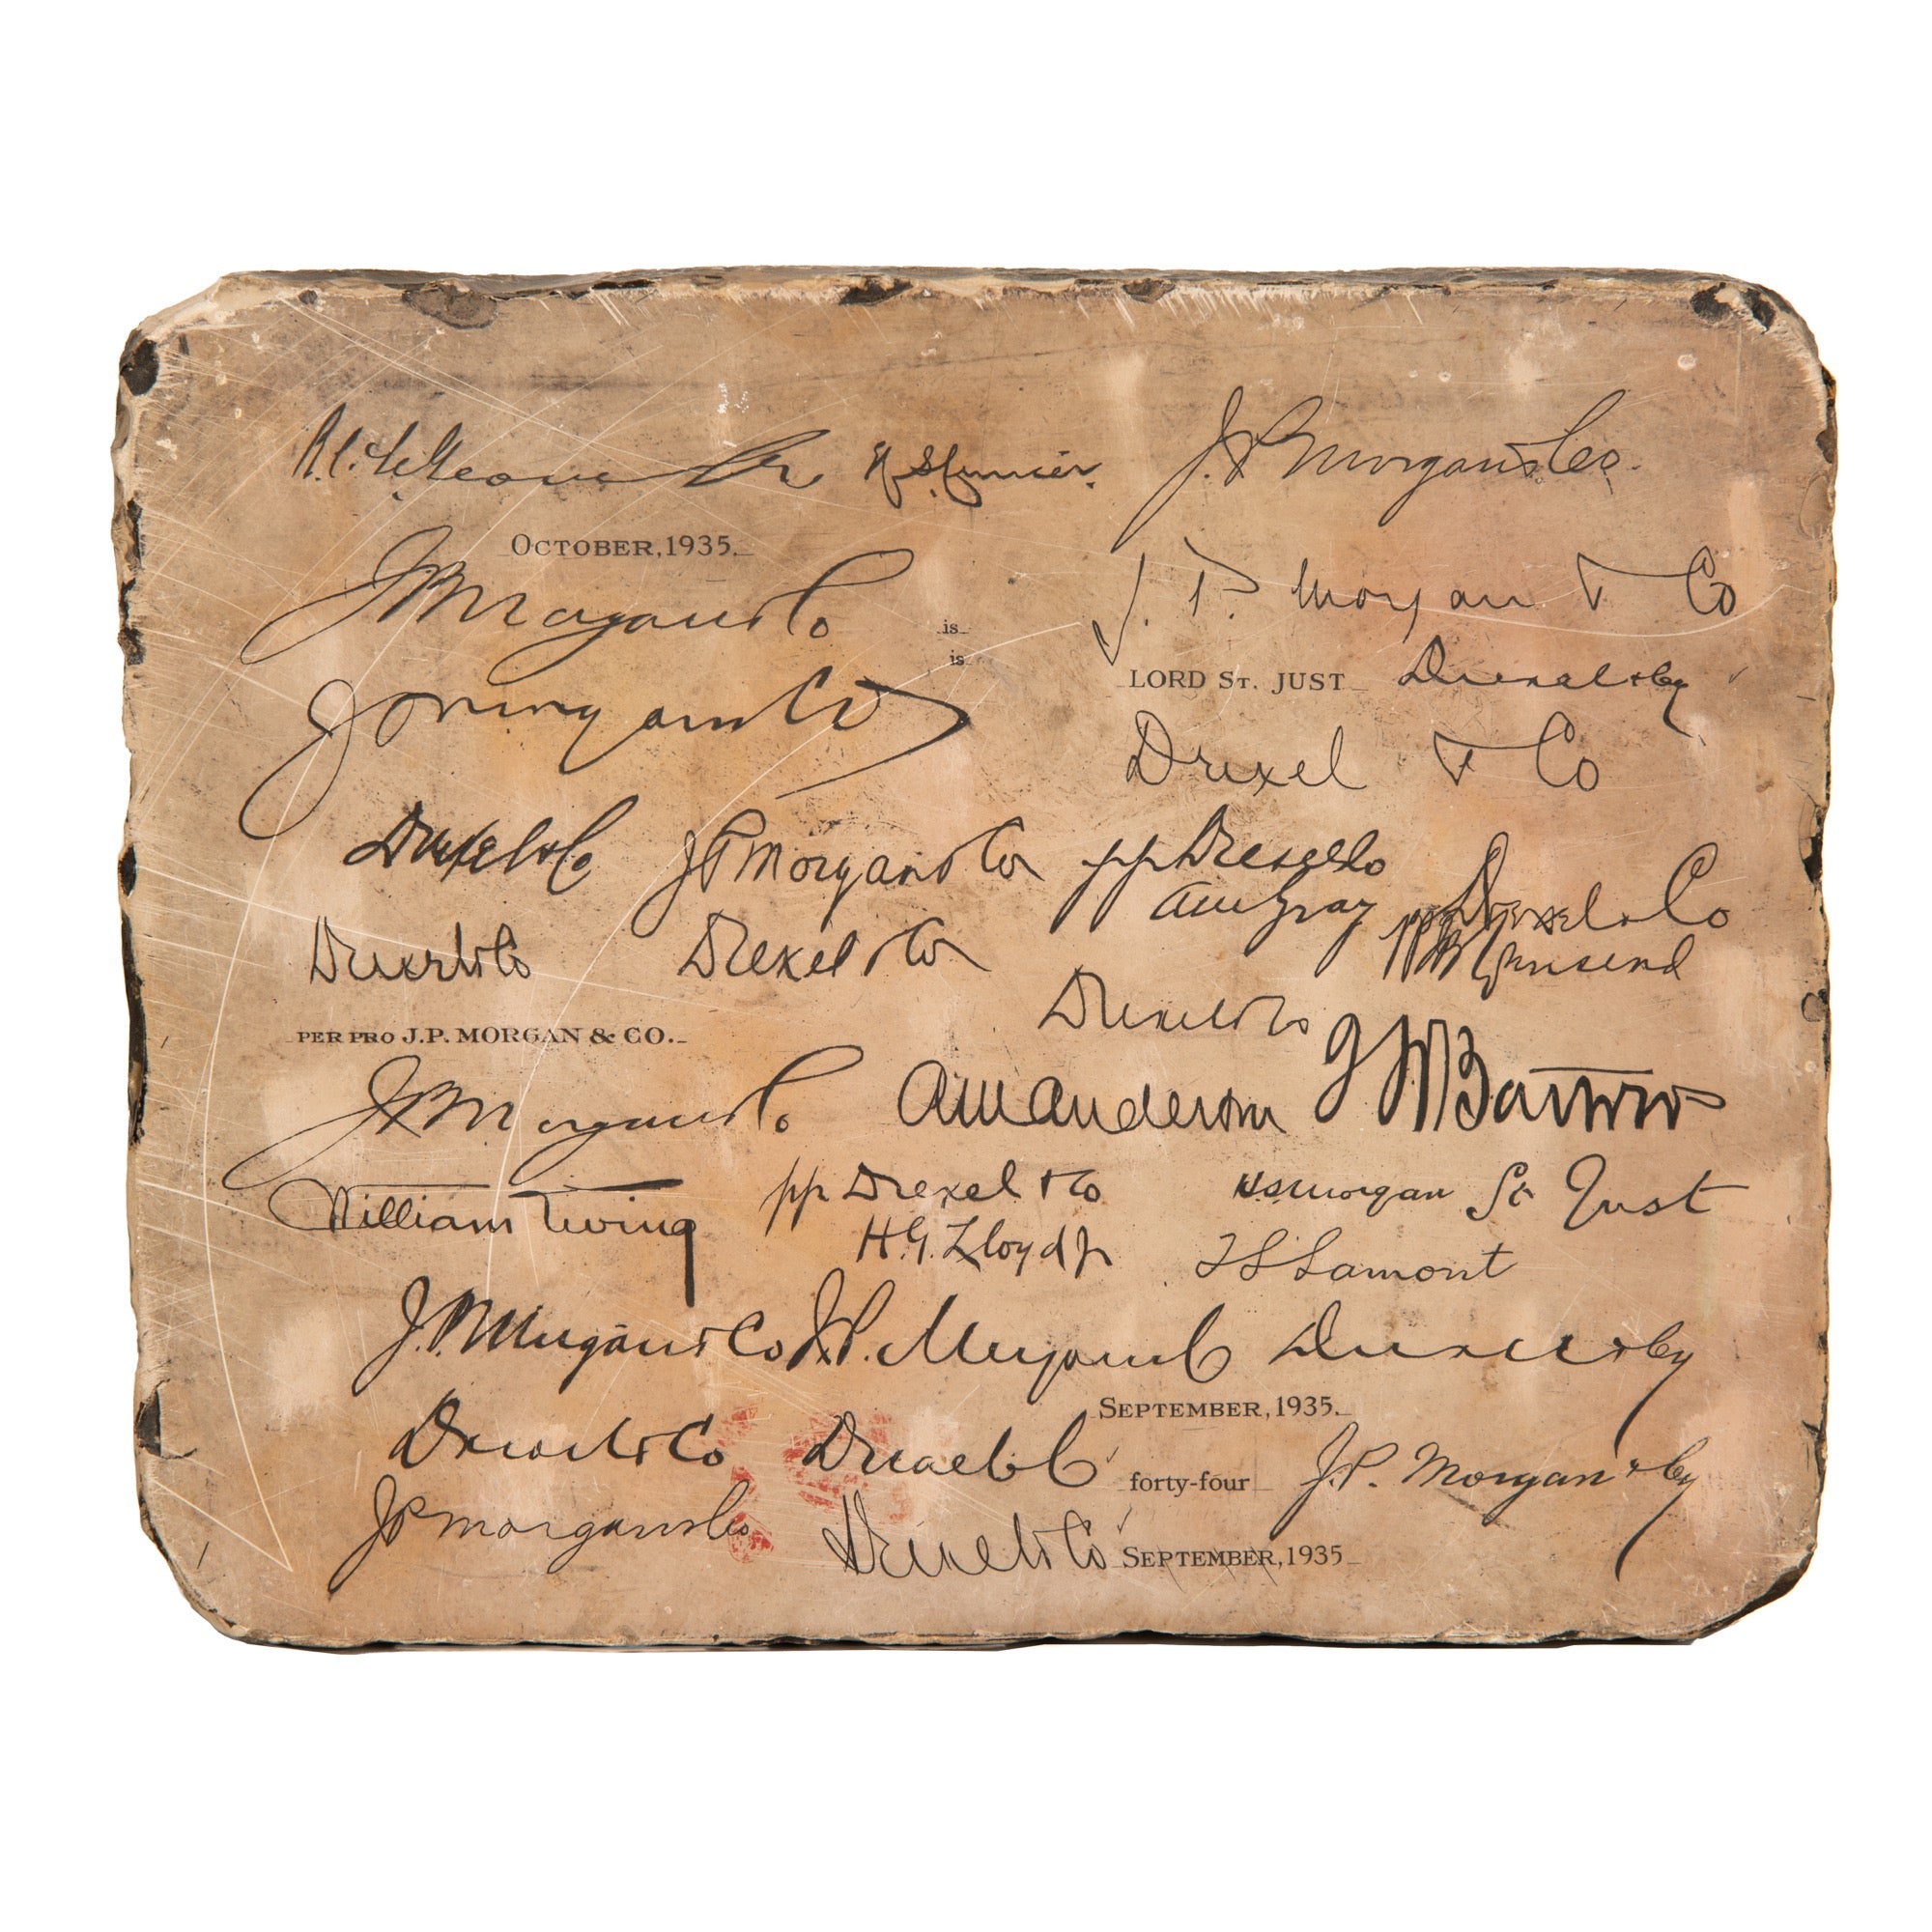 J. P. Morgan & Co.
OCTOBER, 1935.
J. P. Morgan & Co
is
J. P. Morgan & Co
is
LORD ST. JUST Drexel & Co
J P Morgan & Co
Drexel & Co
Drexel & Co J P Morgan & Co pp Drexel & Co
Drexel & Co
Drexel & Co Drexel & Co
Drexel & Co
PER PRO J.P. MORGAN & CO.
J P Morgan & Co A M Anderson
William Ewing pp Drexel & Co H S Morgan St Just
H. G. Lloyd Jr T S Lamont
J. P. Morgan & Co J. P. Morgan & Co Drexel & Co
SEPTEMBER, 1935.
Drexel & Co Drexel & Co forty-four J. P. Morgan & Co
J P Morgan & Co Drexel & Co SEPTEMBER, 1935